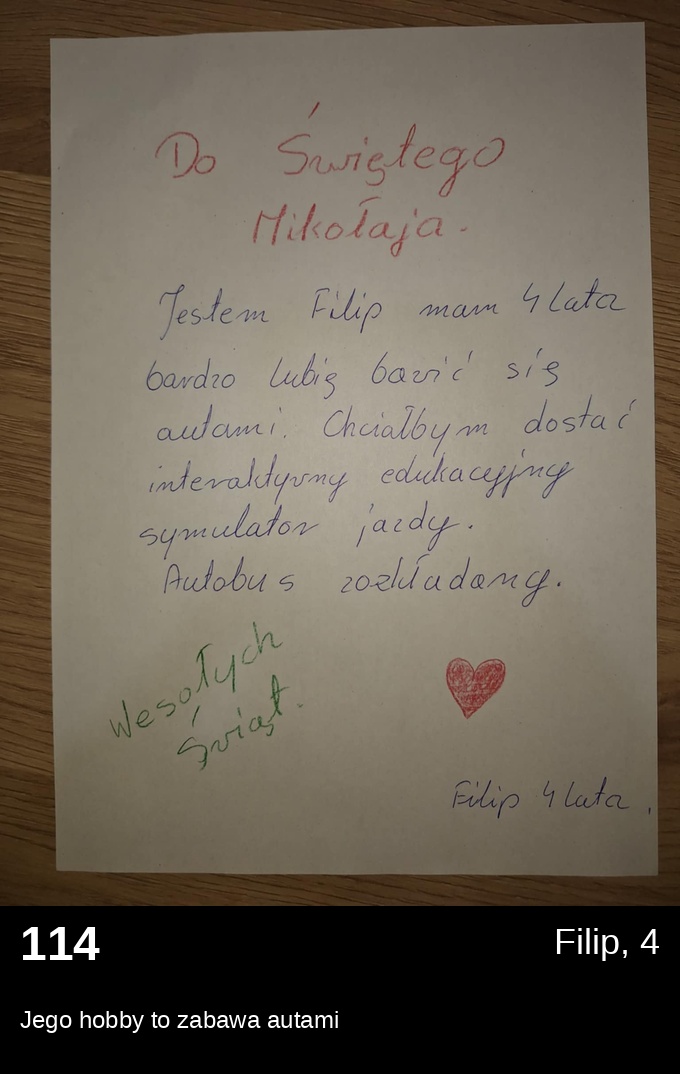 Do Świętego
Mikołaja.
Jestem Filip mam 4 lata
bardzo lubię bawić się
autami. Chciałbym dostać
interaktywny edukacyjny
symulator jazdy.
Autobus rozkładany.
Wesołych
Świąt.
Filip 4 lata.
114
Filip, 4
Jego hobby to zabawa autami